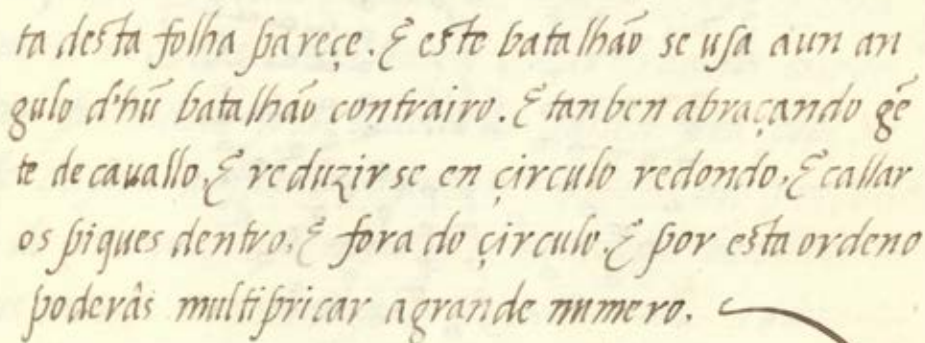 ta desta folha pareçe. & este batalhaõ se usa aun an
gulo d'hũ batalhaõ contrairo. & tanben abraçando gẽ
te de cavallo, & reduzir se en çirculo redondo, & callar
os piques dentro, & fora do çirculo. & por esta ordeno
poderâs multipricar agrande numero.